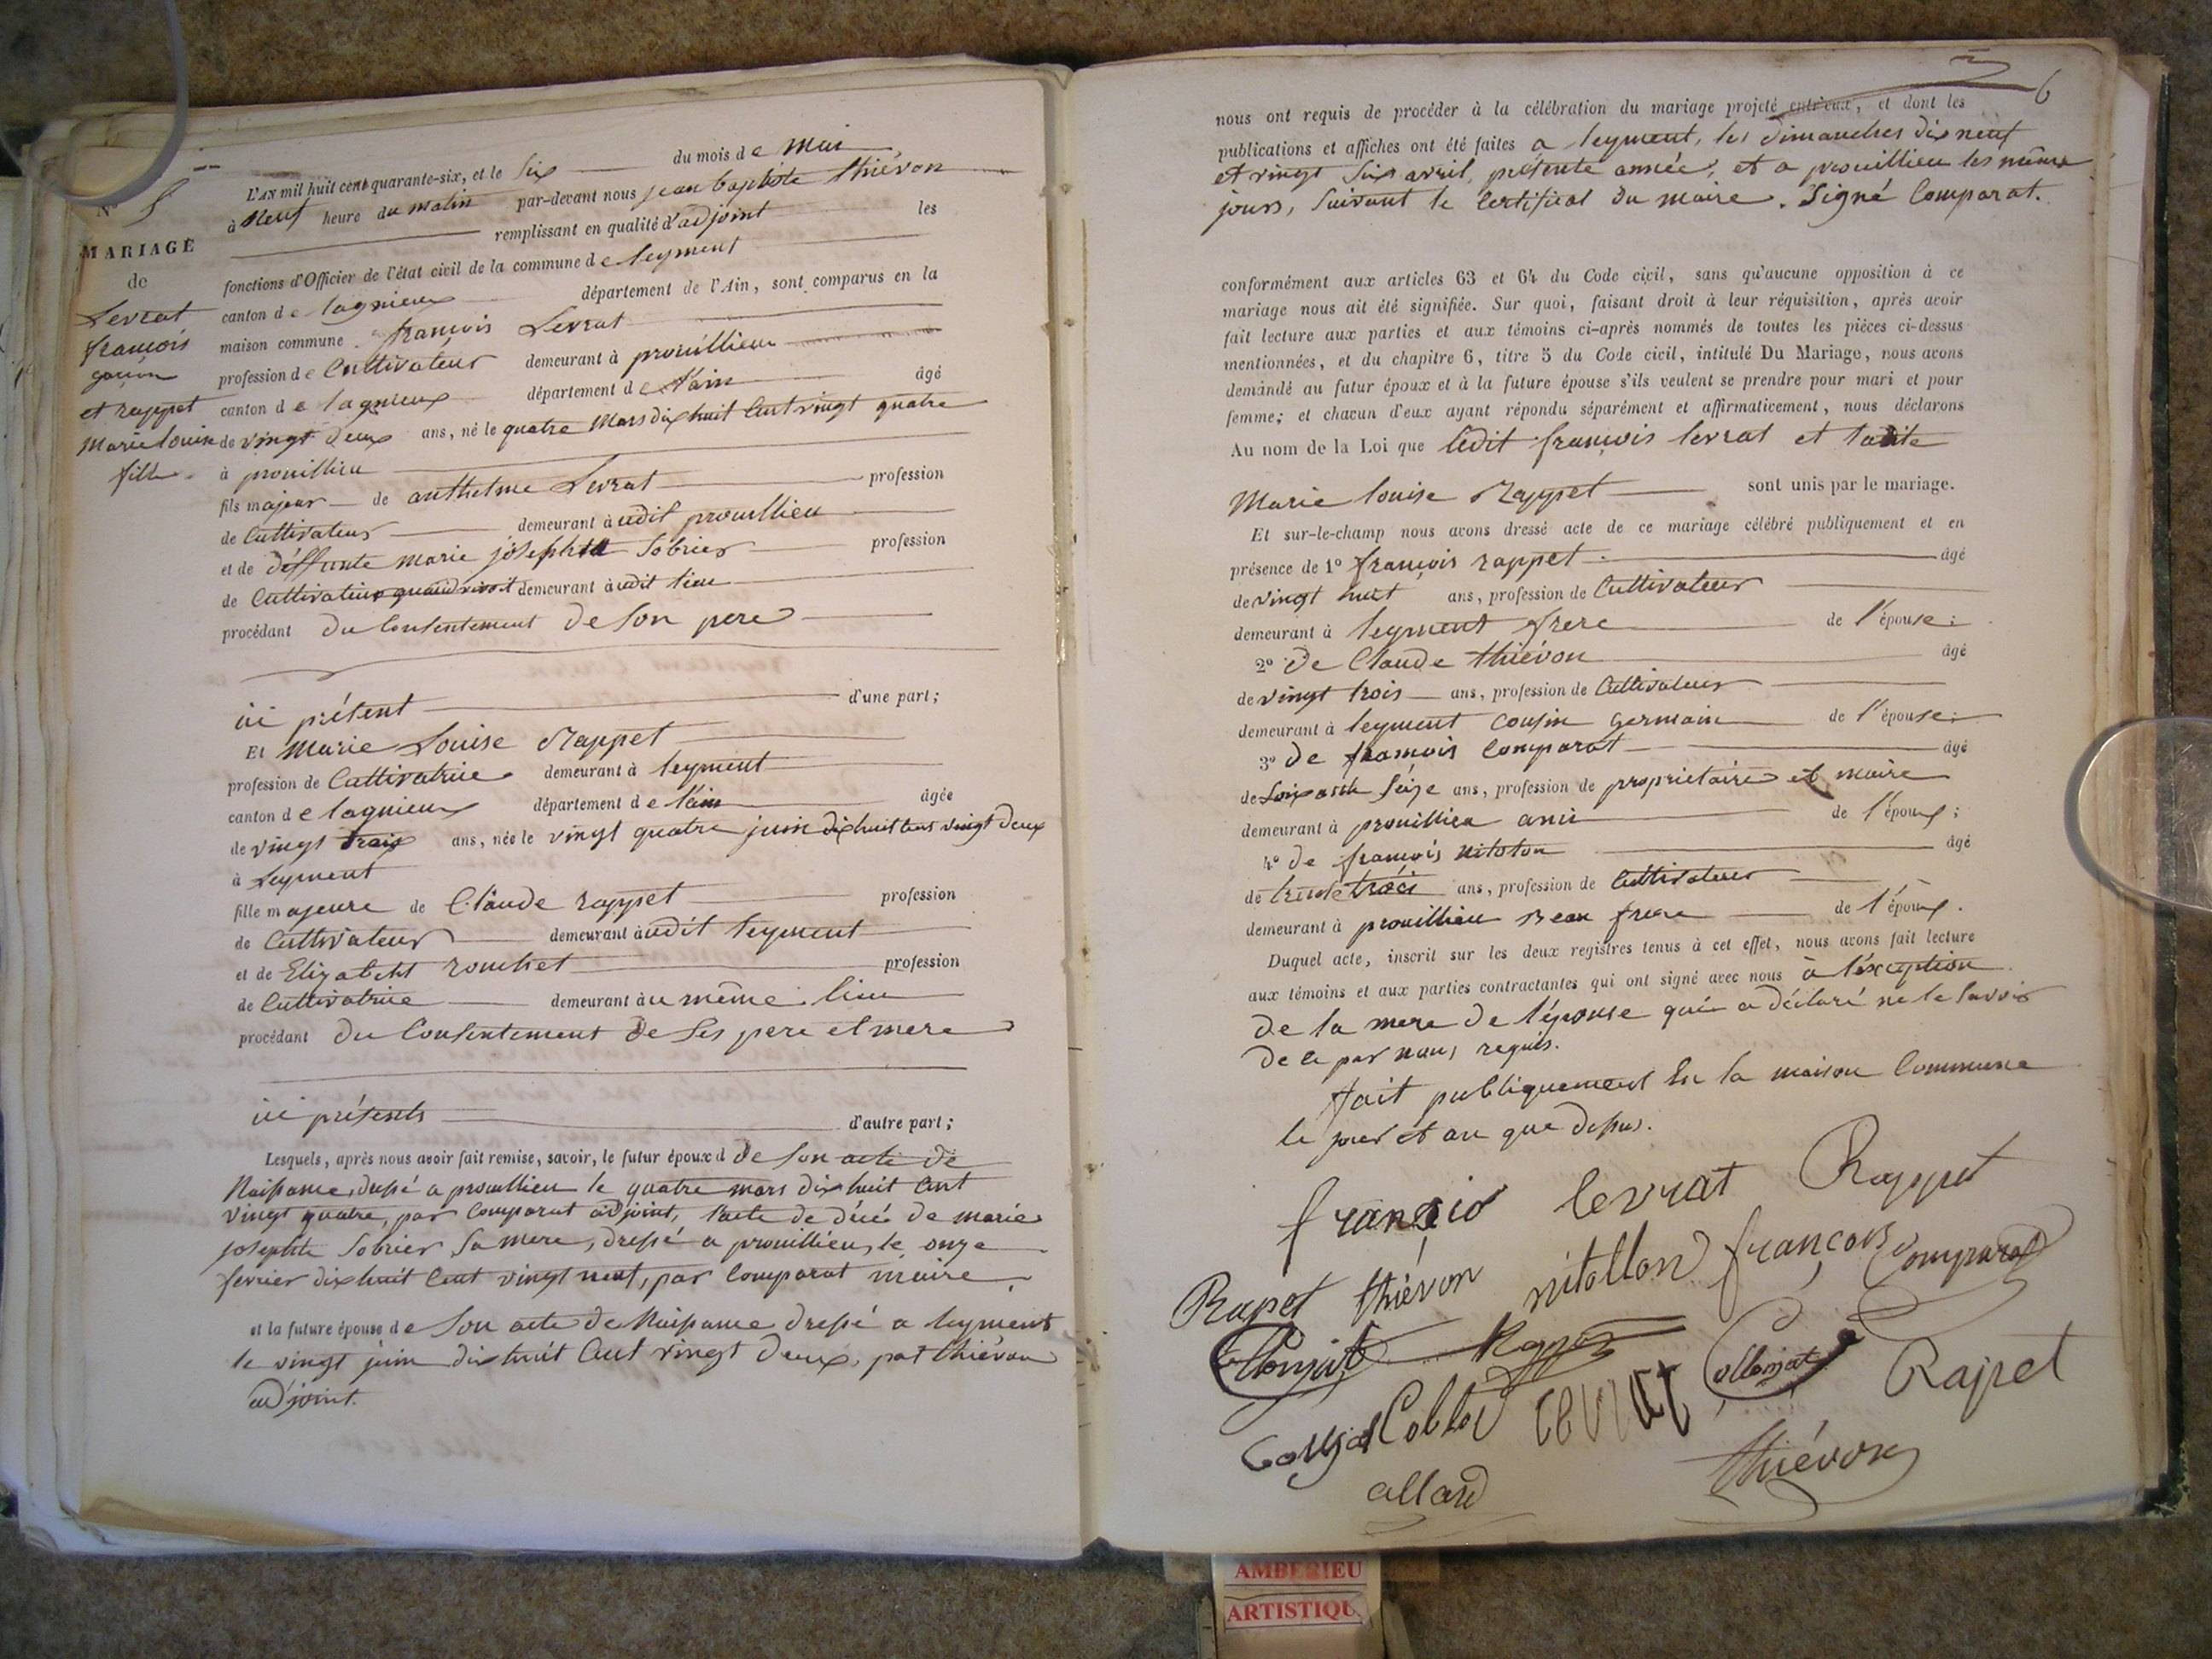 N° 5
MARIAGE
de
Levrat
françois
garçon
et rappet
Marie louise
fille.
L'AN mil huit cent quarante-six, et le six du mois de Mai
à Neuf heure du matin par-devant nous jean baptiste thiévon
remplissant en qualité d'adjoint les
fonctions d'Officier de l'état civil de la commune de leyment
canton de lagnieux département de l'Ain, sont comparus en la
maison commune françois Levrat
profession de Cultivateur demeurant à prouillieu
canton de lagnieux département de l'ain âgé
de vingt deux ans, né le quatre Mars dix huit Cent vingt quatre
à prouillieu
fils majeur de anthelme Levrat profession
de Cultivateur demeurant à udit prouillieu
et de déffunte marie josephte Sobrier profession
de Cultivatrice quand vivoit demeurant à udit lieu
procédant du Consentement de Son pere
ici présent d'une part;
Et Marie Louise Rappet
profession de Cultivatrice demeurant à leyment
canton de lagnieux département de l'ain âgée
de vingt trois ans, née le vingt quatre juin dix huit Cent vingt deux
à Leyment
fille majeure de Claude rappet profession
de Cultivateur demeurant à udit leyment
et de Elizabeht rouchet profession
de Cultivatrice demeurant à u même lieu
procédant du Consentement de Ses pere et mere
ici présents d'autre part;
Lesquels, après nous avoir fait remise, savoir, le futur époux d de Son acte de
Naissance, dressé a prouillieu le quatre mars dix huit Cent
vingt quatre, par Comparat adjoint, l'acte de décé de marie
josephte Sobrier Sa mere, dressé a prouillieu, le onze
fevrier dix huit Cent vingt neuf, par Comparat maire.
et la future épouse de Son acte de Naissance dressé a leyment
le vingt juin dix huit Cent vingt deux, par thiévon
adjoint.
6
nous ont requis de procéder à la célébration du mariage projeté entr'eux, et dont les
publications et affiches ont été faites a leyment, les dimanches dix neuf
et vingt Six avril, présente année, et a prouillieu les même
jours, Suivant le Certificat du maire. Signé Comparat.
conformément aux articles 63 et 64 du Code civil, sans qu'aucune opposition à ce
mariage nous ait été signifiée. Sur quoi, faisant droit à leur réquisition, après avoir
fait lecture aux parties et aux témoins ci-après nommés de toutes les pièces ci-dessus
mentionnées, et du chapitre 6, titre 5 du Code civil, intitulé Du Mariage, nous avons
demandé au futur époux et à la future épouse s'ils veulent se prendre pour mari et pour
femme; et chacun d'eux ayant répondu séparément et affirmativement, nous déclarons
Au nom de la Loi que Ledit françois levrat et ladite
Marie louise Rappet sont unis par le mariage.
Et sur-le-champ nous avons dressé acte de ce mariage célébré publiquement et en
présence de 1° françois rappet âgé
de vingt huit ans, profession de Cultivateur
demeurant à leyment frere de l'épouse;
2° de Claude thiévon âgé
de vingt trois ans, profession de Cultivateur
demeurant à leyment cousin germain de l'épouse;
3° de françois Comparat âgé
de Soixante Seize ans, profession de proprietaire et maire
demeurant à prouillieu ami de l'époux;
4° de françois nitoton âgé
de trente trois ans, profession de Cultivateur
demeurant à prouillieu Beau frere de l'époux.
Duquel acte, inscrit sur les deux registres tenus à cet effet, nous avons fait lecture
aux témoins et aux parties contractantes qui ont signé avec nous à l'éxception
de la mere de l'épouse qui a déclaré ne le Savoir
de ce par nous requis.
fait publiquement En la maison Commune
le jour et an que dessus.
françio levrat Rappet
Rapet thiévon nitollon françois Comparat
Rappet
levrat
Rapet
allard
thiévon
AMBERIEU
ARTISTIQU